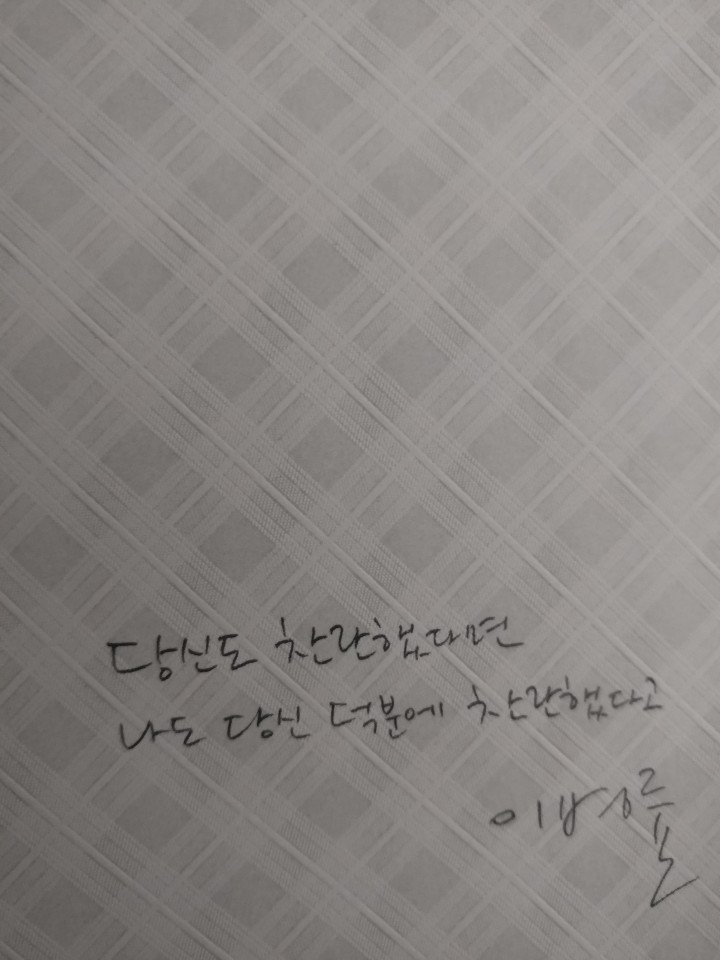 당신도 찬란했다면
나도 당신 덕분에 찬란했다고
이병률